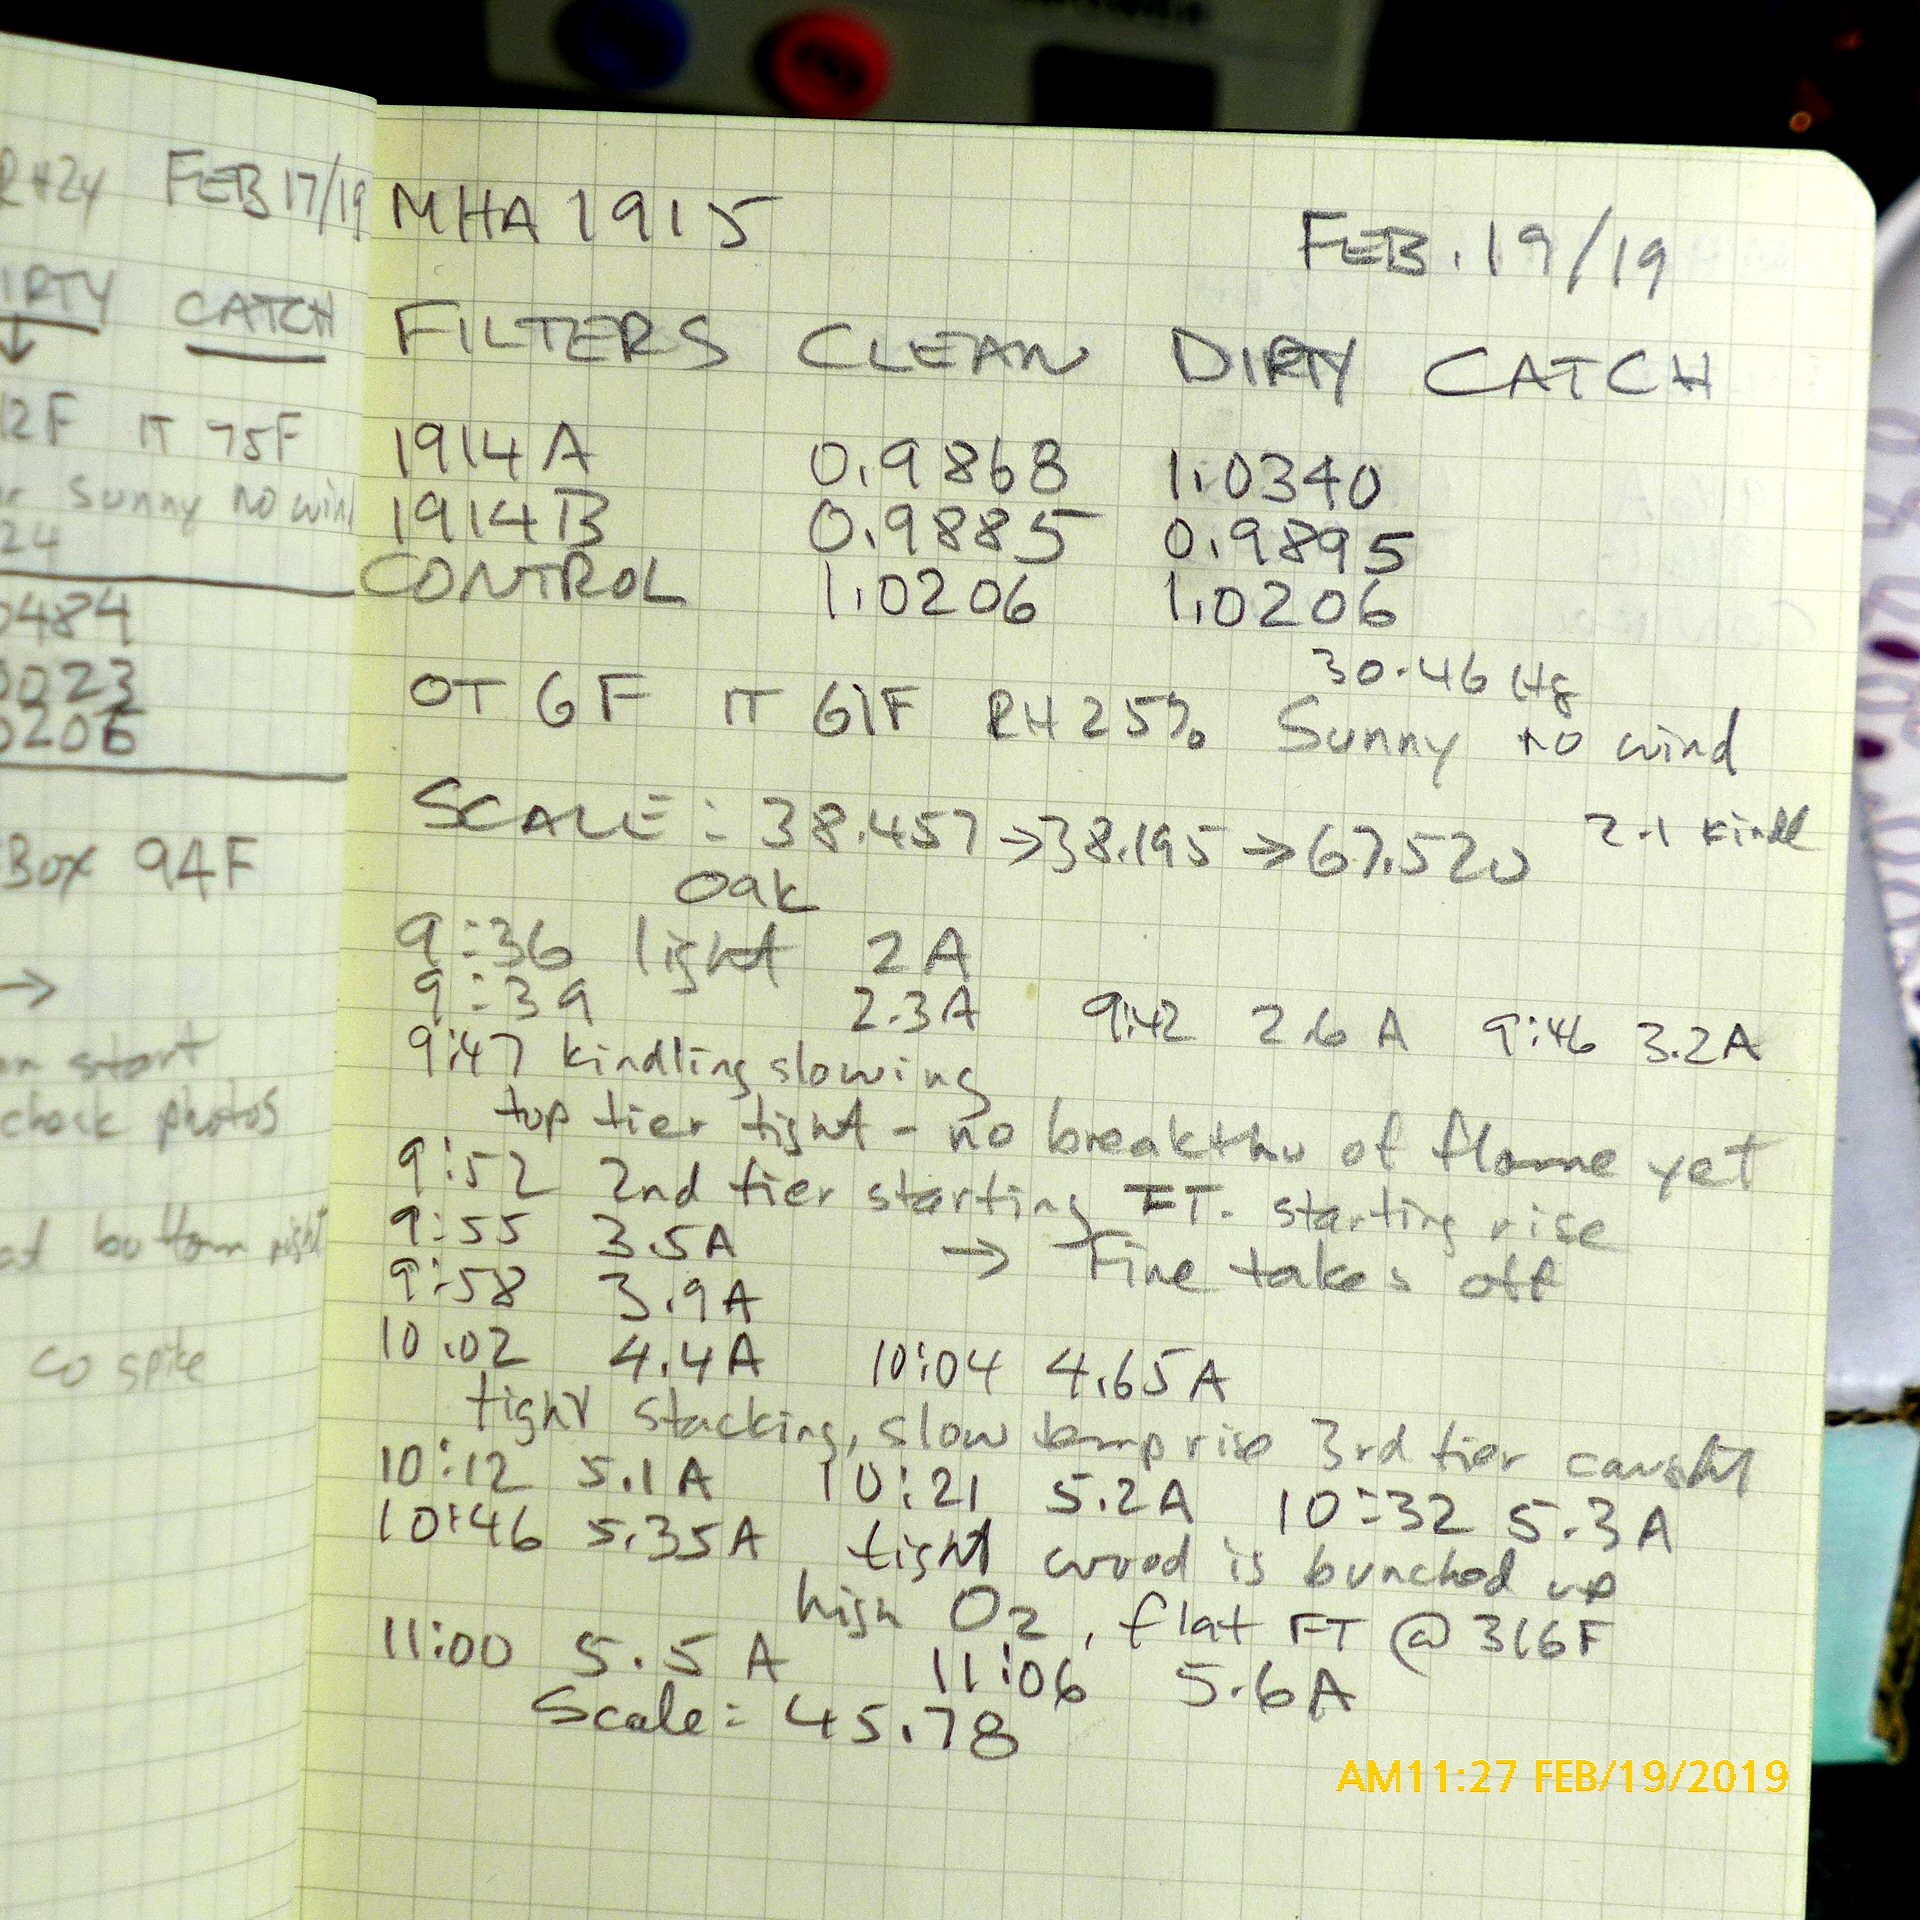 RH24 FEB 17/19
DIRTY CATCH
12F IT 75F
Sunny no wind
24
0484
0023
0206
Box 94F
→
on start
check photos
at bottom right
CO spike
MHA 1915
FEB. 19/19
FILTERS CLEAN DIRTY CATCH
1914A 0.9868 1.0340
1914B 0.9885 0.9895
CONTROL 1.0206 1.0206
30.46 Hg
OT 6F IT 61F RH 25% Sunny no wind
SCALE: 38.457 → 38.195 → 67.520 2.1 kindl
Oak
9:36 light 2A
9:39 2.3A 9:42 2.6A 9:46 3.2A
9:47 kindling slowing
top tier tight - no breakthru of flame yet
9:52 2nd tier starting FT. starting rise
9:55 3.5A → Fire takes off
9:58 3.9A
10:02 4.4A 10:04 4.65A
tight stacking, slow temp rise 3rd tier caught
10:12 5.1A 10:21 5.2A 10:32 5.3A
10:46 5.35A tight wood is bunched up
high O2, flat FT @ 316F
11:00 5.5A 11:06 5.6A
Scale: 45.78
AM11:27 FEB/19/2019